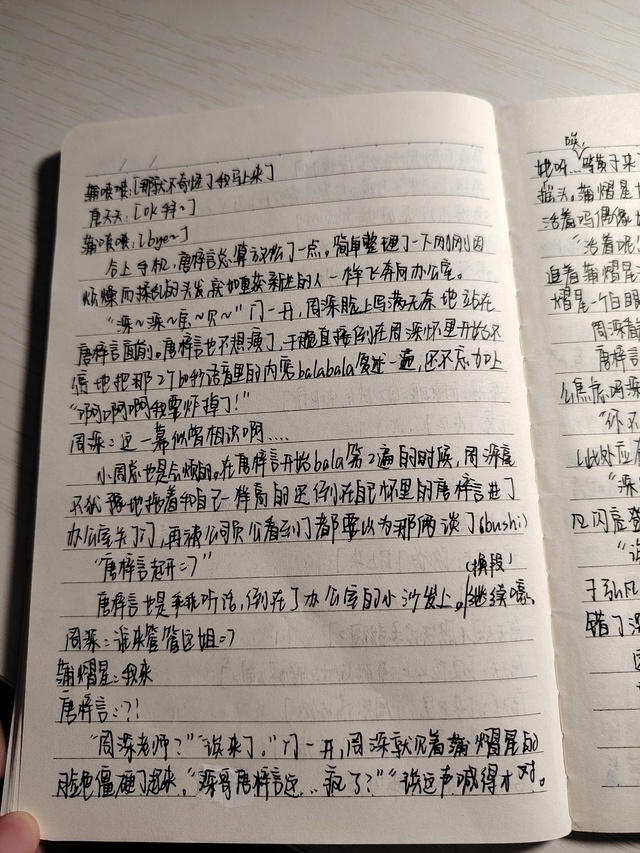 蒲熠熠:[那就不奇怪了我马上来]
唐天天:[ok 拜~]
蒲熠熠:[bye~]
合上手机,唐梓言总算放松了一点。简单整理了一下刚刚因
烦燥而揉乱的头发,就如重获新生的人一样飞奔向办公室。
"深~深~宝~贝~"门一开,周深脸上写满无奈地站在
唐梓言面前。唐梓言也不想演了,干脆直接倒在周深怀里开始
地把那27秒语音里的内容balabala复述一遍,还不忘加上
"啊啊啊我要炸掉了!"
周深:这一幕似曾相识啊....
小周总也是会烦的。在唐梓言开始bala第2遍的时候,周深毫
不犹豫地拖着和自己一样高的还倒在自己怀里的唐梓言进了
办公室关了门,再演公司员公看到了都要以为那俩谈了(bushi)
"唐梓言起开=?"
(换段)
唐梓言也是乖乖听话,倒在了办公室的小沙发上。/继续嚎。
周深:谁来管管这姐=?
蒲熠星:我来
唐梓言:?!
"周深老师?""诶来了。"门一开,周深就见着蒲熠星的
脸色僵硬了起来,"深哥唐梓言这...疯了?""诶这声喊得才对。
她呀...
摇头。蒲熠星
活着吗偶像
"活着呢
追着蒲熠星
熠星一个白眼
周深看
唐梓言
么焦虑吗深
"你不
(此处应有
"深
"诶
错了深